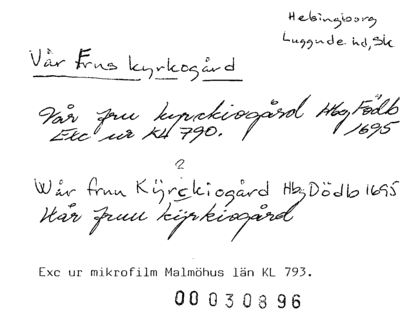 Helsingborg
Luggude hd, Sk
Vår Frus kyrkogård
Vår fru kyrckiogård Hbg Födb
Exc ur KL 790. 1695
?
Wår fruu Kÿrckiogård Hbg Dödb 1695
Wår fruu kÿrkiogård
Exc ur mikrofilm Malmöhus län KL 793.
00030896